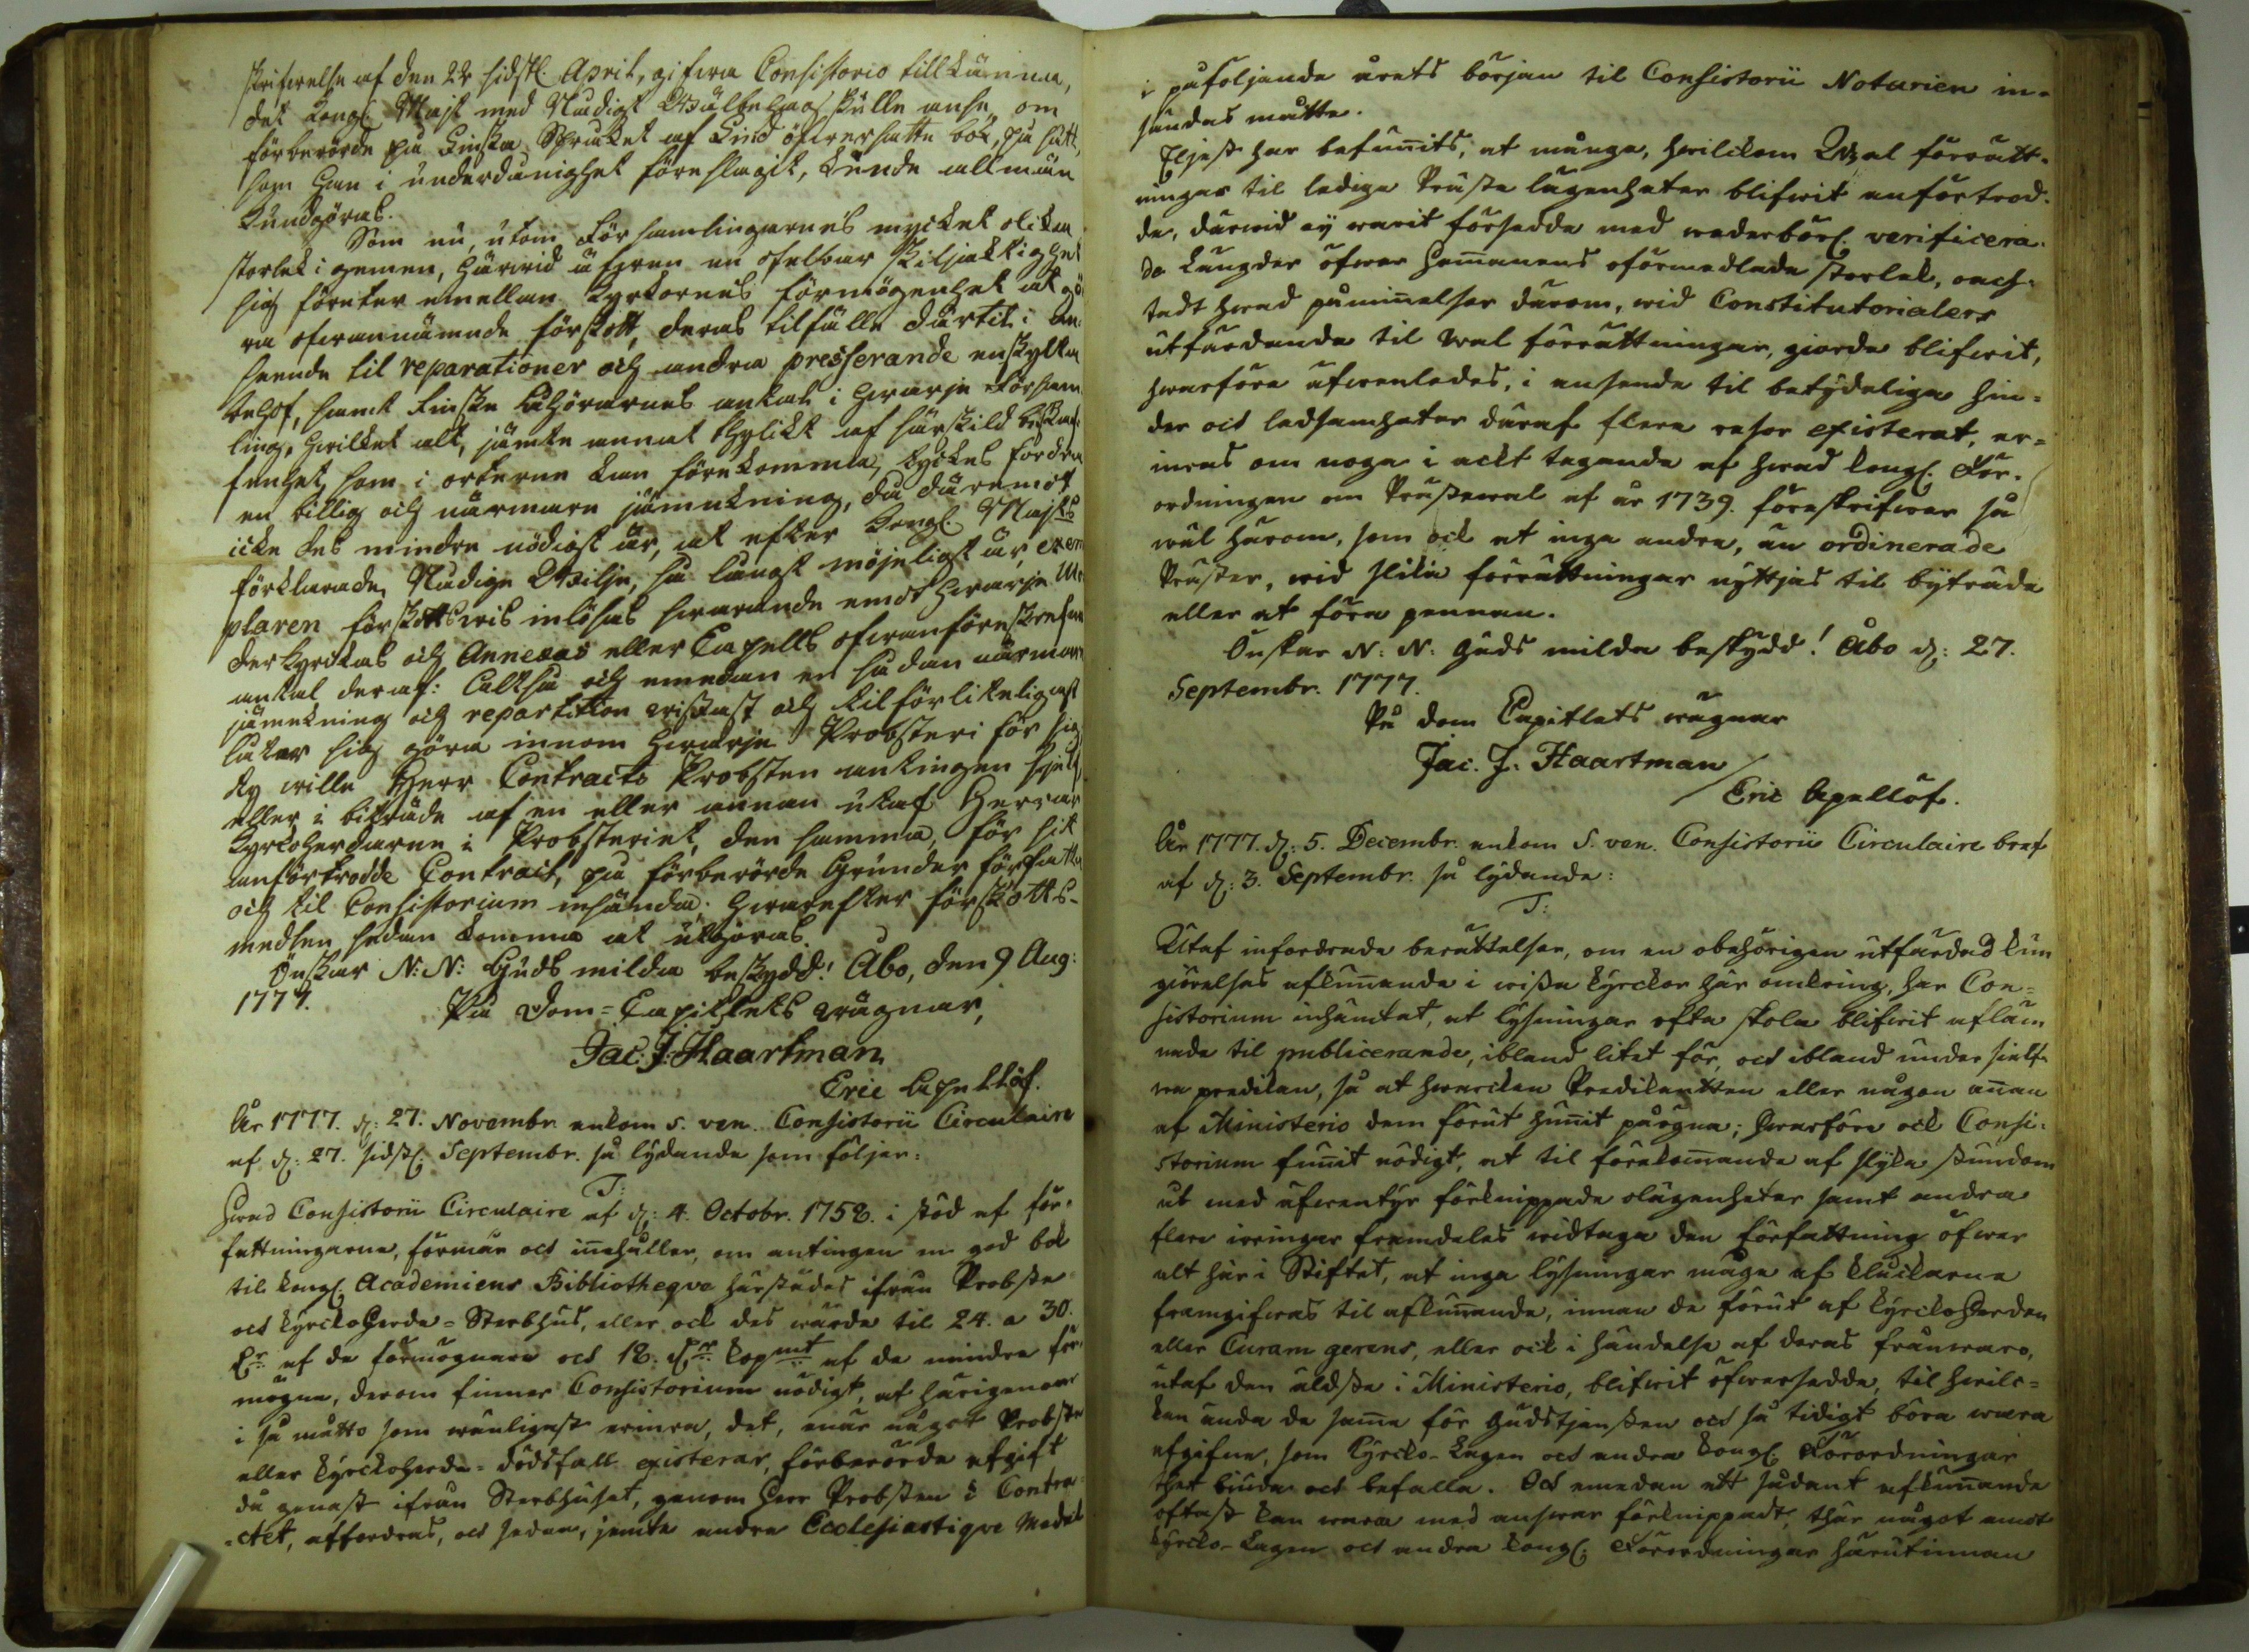 skrifwelse af den 22 sidstl. April, gifwa Consistorio tillkänna,
det Kongl. Majt med Nådigt Wälbehag skulle anse, om
förberörde på Finska Språket af Lind öfwersatte bok, på sätt,
som han i underdånighet föreslagit, kunde allmän
kundgöras.
Som nu, utom Församlingarnes mycket olika
storlek i gemen, härwid äfwen en ofelbar skiljaktighet
sig företer emellan Kyrkornes förmögenhet at gö
ra ofwannämnde förskott, deras tilfälle därtil i an
seende til reparationer och andra presserande enskylta
behof, samt Finske Åhörarnes antal i hwarje Försam
ling, hwilket alt, jämte annat thylikt af särskild beskaf
fenhet, som i orterne kan förekomma, tyckes fordra
en billig och närmare jämnkning, då däremot
icke des mindre nödigt är, at efter Kongl. Majts
förklarade Nådige Wilje, så långt möjeligt är, exem
plaren förskottswis inlösas hwarande emot hwarje Mo
derkyrkas och Annexas eller Capells ofwanföreskrefne
antal deraf: Altså och emedan en sådan närmare
jämnkning och repartition wissast och tilförlitligast
låter sig göra innom hwarje Probsteri för sig
ty wille Herr Contracts Probsten antingen sjelf
eller i biträde af en eller annan utaf Herrar
Kyrkoherdarne i Probsteriet, den samma, för sit
anförtrodde Contract, på förberörde Grunder författa
och til Consistorium insända; hwarefter förskotts-
medlen sedan komma at utgöras.
Önskar N: N: Guds milda beskydd! Åbo, den 9 Aug:
1777. På Dom-Capitlets wägnar,
Jac: J: Haartman
Eric Lepellöf.
År 1777. d: 27. Novembr. ankom s. ven. Consistorii Circulaire
af d: 27. sidstl. Septembr. så lydande som följer:
T:
Hwad Consistorii Circulaire af d: 4. Octobr. 1758. i stöd af för-
fattningarna, förmår och inehåller, om antingen en god bok
til Kongl. Academiens Bibliotheque härstädes ifrån Probste
och Kyrckoherde-Sterbhus, eller ock des wärde til 24. a 30.
af de förmögnare och 18. kopmt af de mindre för-
mögna, derom finner Consistorium nödigt, at härigenom
i så måtto som wänligast erinra, det, enär något Probste
eller Kyrckoherde-dödsfall existerar, förberörde afgift
då genast ifrån Sterbhuset, genom Herr Probsten i Contra-
ctet, affordras, och sedan, jemte andra Ecclesiastique Medel
i påföljande årets början til Consistorii Notarien in-
sändas måtte.
Eljest har befunnits, at många, hwilckom Wal förrätt-
ningar til lediga Prästa lägenheter blifwit anförtrod-
da, därwid ej warit försedde med wederbörl. verificera-
de Längder öfwer Hemanens oförmedlade storlek, oach-
tadt hwad påminnelser därom, wid Constitutorialers
utfärdande til wal förrättningar, giorda blifwit,
hwarföre äfwenledes, i anseende til betydeliga hin-
der och ledsamheter däraf flera resor existerat, er-
inras om noga i ackt tagande af hwad Kongl. För-
ordningen om Prästewal af år 1739. föreskrifwer så
wäl härom, som ock at inga andra, än ordinerade
Präster, wid slika förrättningar nyttjas til byträde
eller at föra pennan.
Önskar N: N: Guds milda beskydd! Åbo d: 27.
Septembr. 1777.
På Dom Capitlets wägnar
Jac. J. Haartman
Eric Lepellöf.
År 1777. d: 5. Decembr. ankom S. ven. Consistorii Circulaire bref
af d: 3. Septembr. så lydande:
T:
Utaf infordrade berättelser, om en obehörigen utfärdad kun
giörelses afkunnande i wissa kyrckor här omkring, har Con-
sistorium inhämtat, at lysningar ofta skola blifwit afläm
nade til publicerande, ibland litet för, och ibland under sielf-
wa predikan, så at hwarcken Predikanten eller någon annan
af Ministerio dem förut hunnit påögna; hwarföre ock Consi-
storium funnit nödigt, at til förekommande af slyka stundom
ut med äfwentyr förknippade olägenheter samt andra
flere irringar framdeles widtaga den författning öfwer
alt här i Stiftet, at inga lysningar måga af Kläckarna
framgifwas til afkunnande, innan de förut af Kyrckoherden
eller Curam gerens, eller ock i händelse af deras frånwaro,
utaf den äldsta i Ministerio, blifwit öfwersedde, til hwilc-
ken ända de samma för Gudstjensten och så tidigt böra wara
afgifne, som Kyrcko-Lagen och andra Kongl. Förordningar
thet biuda och befalla. Och emedan ett sådant afkunnande
oftast kan wara med answar förknippadt, thär något emot
Kyrcko-Lagen och andra Kongl. Förordningar härutinnan